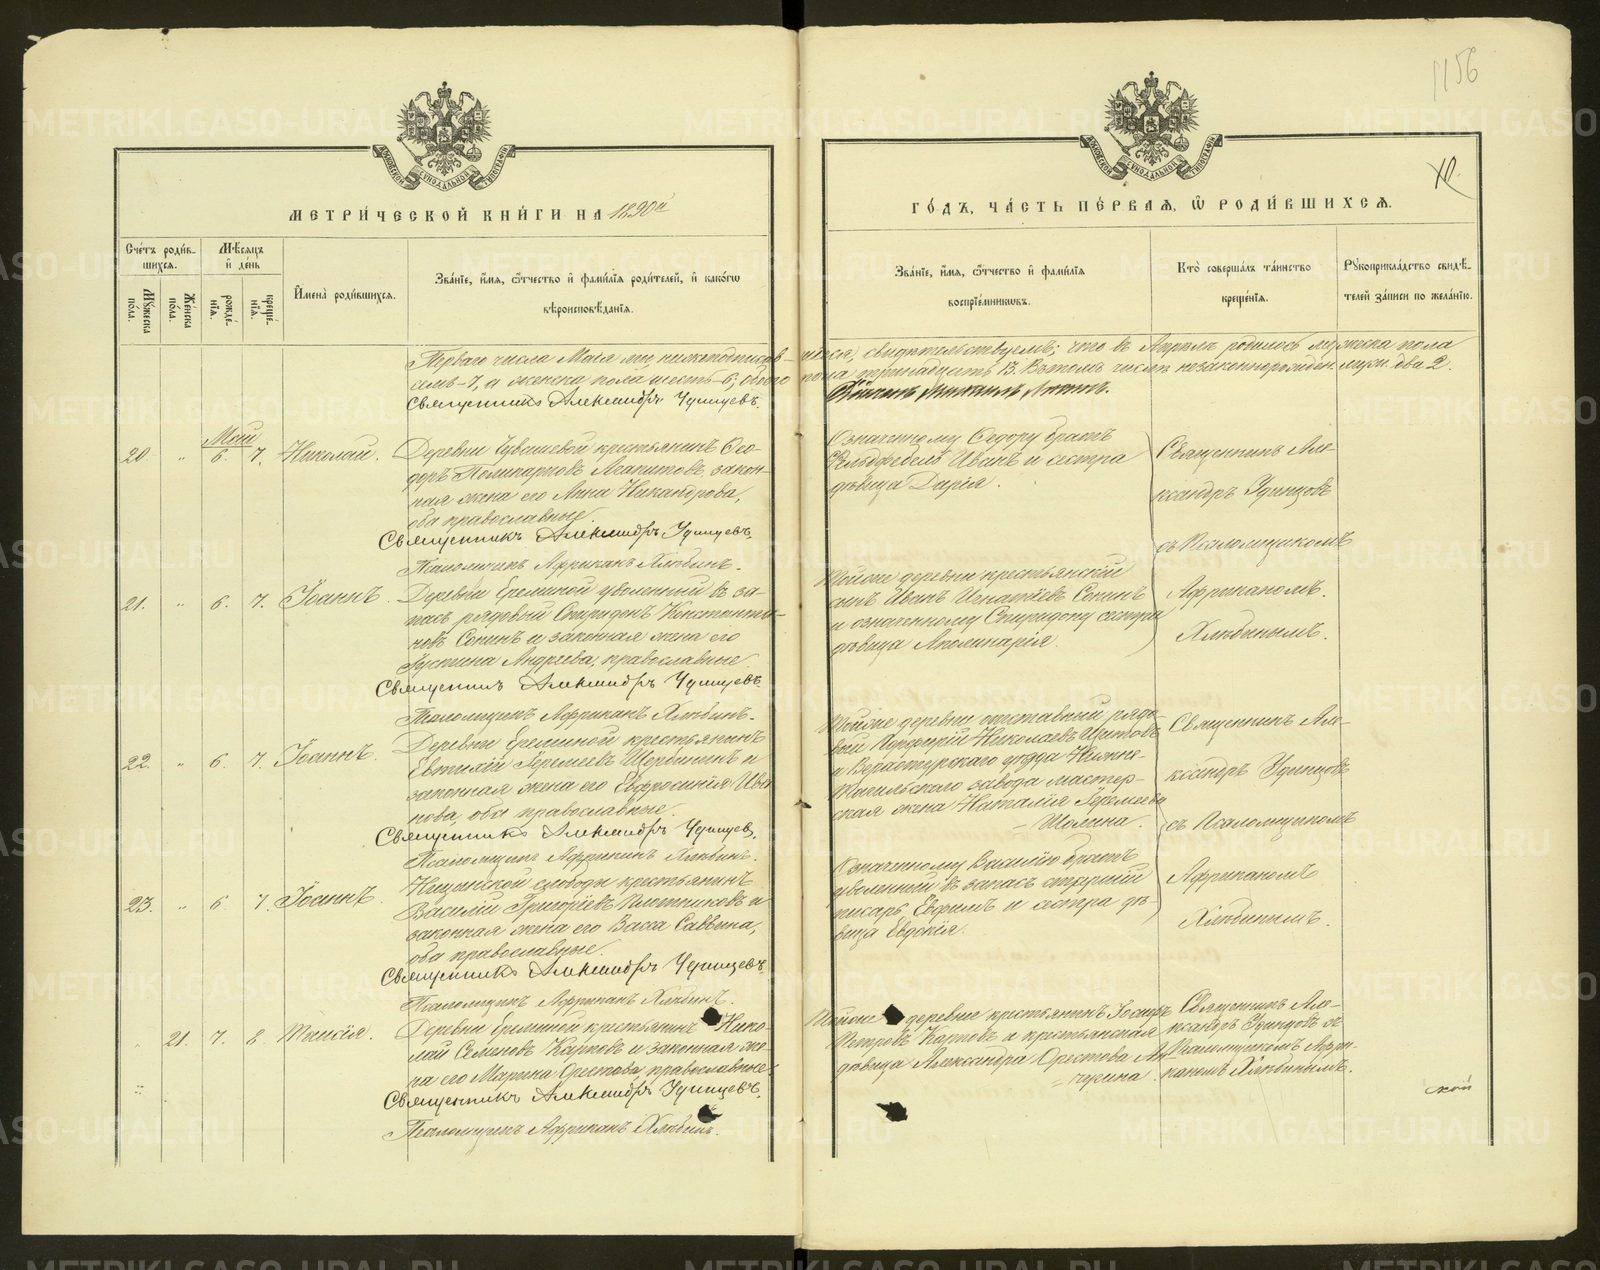 1156
10.
МЕТРИ́ЧЕСКОЙ КНИ́ГИ НА 1890й
ГО́ДЪ, ЧА́СТЬ ПЕ́РВАѦ, Ѡ҆ РОДИ́ВШИХСѦ.
Сче́тъ роди́вшихсѧ.
Мѣ́сѧцъ и҆ де́нь
Мꙋ́жеска по́ла.
Же́нска по́ла.
рожде́нїѧ.
креще́нїѧ.
И҆мена̀ роди́вшихсѧ.
Зва́нїе, и҆́мѧ, ѻ҆́тчество и҆ фами́лїѧ роди́телей, и҆ како́гѡ
вѣроисповѣ́данїѧ.
Зва́нїе, и҆́мѧ, ѻ҆́тчество и҆ фами́лїѧ
воспрїе́мникѡвъ.
Кто̀ соверша́лъ та́инство
креще́нїѧ.
Рꙋкоприкла́дство свидѣ́-
телей за́писи по жела́нїю.
Перваго числа Мая мы, нижеподписав-
шіеся, свидѣтельствуемъ, что въ Апрѣлѣ родилось мужеска пола
семь-7, а женска пола шесть-6; обоего
пола тринадцать 13. Въ томъ числѣ незаконнорожден. муж. два 2.
Священникъ Александръ Удинцевъ.
Май
20. " 6. 7. Николай.
Деревни Чувашевой крестьянинъ Ѳео-
доръ Поликарповъ Агапитовъ, закон-
ная жена его Анна Никандрова,
оба православные.
Священникъ Александръ Удинцевъ.
Псаломщикъ Африканъ Хлѣбинъ.
Означенному Ѳедору братъ
Фельдфебель Иванъ и сестра
дѣвица Дарія.
Священникъ Але-
ксандръ Удинцовъ
съ Псаломщикомъ
Африканомъ
Хлѣбинымъ.
21. " 6. 7. Іоаннъ.
Деревни Ереминой уволенный въ за-
пасъ рядовый Спиридонъ Константи-
новъ Сонинъ и законная жена его
Іустина Андреева, православные.
Священникъ Александръ Удинцевъ.
Псаломщикъ Африканъ Хлѣбинъ.
Тойже деревни крестьянскій
сынъ Иванъ Игнатіевъ Сонинъ
и означенному Спиридону сестра
дѣвица Аполинарія.
22. " 6. 7. Іоаннъ.
Деревни Ереминой крестьянинъ
Евтихій Іеремеевъ Щербининъ и
законная жена его Евфросинія Ива-
нова, оба православные.
Священникъ Александръ Удинцевъ.
Псаломщикъ Африканъ Хлѣбинъ.
Тойже деревни отставный рядо-
вый Николаевъ
и Верхотурскаго уѣзда Нижне-
Тагильскаго завода мастер-
ская жена Наталія Іеремеева
Шолина.
Священникъ Але-
ксандръ Удинцовъ
съ Псаломщикомъ
Африканомъ
Хлѣбинымъ.
23. " 6 7. Іоаннъ.
Ницынской слободы крестьянинъ
Василій Григоріевъ Плотниковъ и
законная жена его Васса Саввина,
оба православные.
Священникъ Александръ Удинцевъ.
Псаломщикъ Африканъ Хлѣбинъ.
Означенному Василію братъ
уволенный въ запасъ старшій
писарь Евфимъ и сестра дѣ-
вица Евдокія.
" 21. 7. 8. Таисія.
Деревни Ереминой крестьянинъ Нико-
лай Семеновъ Карповъ и законная же-
на его Марина Орестова, православные.
Священникъ Александръ Удинцевъ.
Псаломщикъ Африканъ Хлѣбинъ.
Тойже деревни крестьянинъ Іосифъ
Петровъ Карповъ и крестьянская
дѣвица Александра Орестова
Священникъ Але-
ксандръ Удинцовъ съ
Псаломщикомъ Афри-
каномъ Хлѣбинымъ.
ской
METRIKI.GASO-URAL.RU